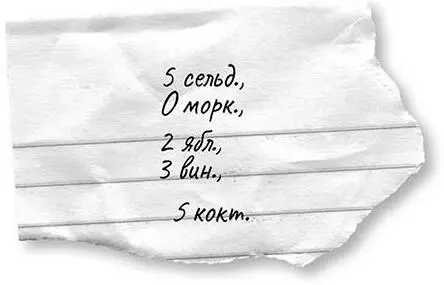 5 сельд.,
0 морк.,
2 ябл.,
3 вин.,
5 кокт.